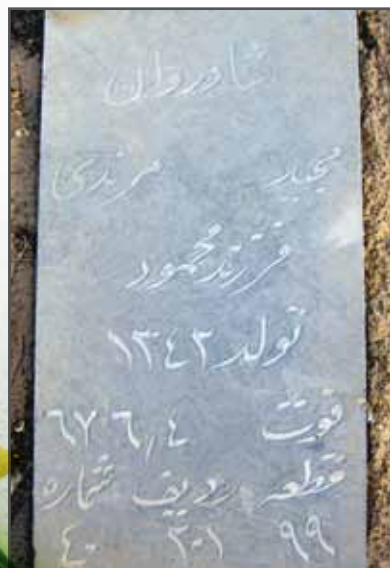 شادروان
مجید مرندی
فرزند محمود
تولد ۱۳۴۲
فوت ۶۷٫۶٫۴
قطعه ردیف شماره
۹۹ ۲۰۱ ۴۰